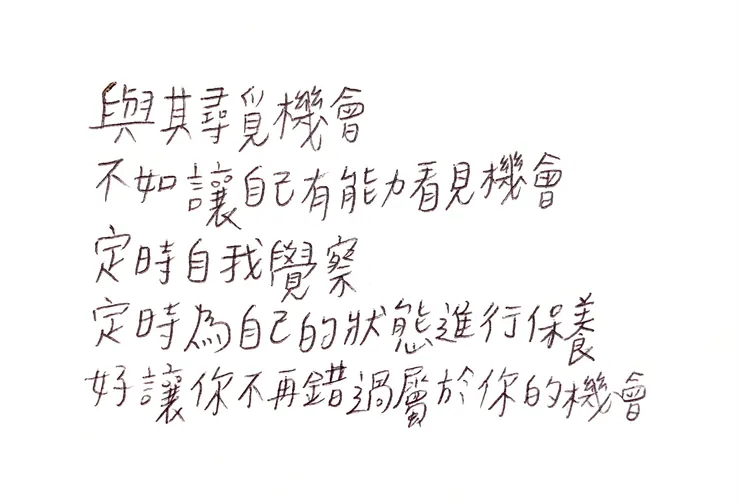 與其尋覓機會
不如讓自己有能力看見機會
定時自我覺察
定時為自己的狀態進行保養
好讓你不再錯過屬於你的機會